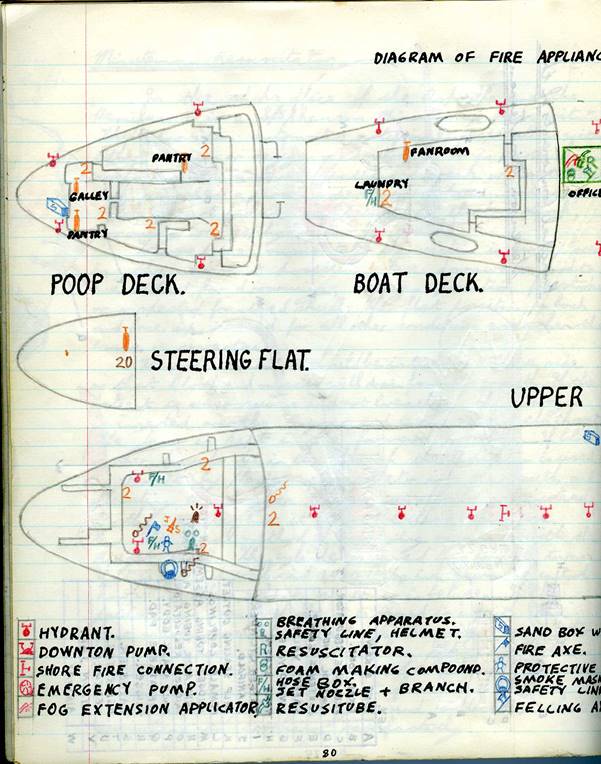 DIAGRAM OF FIRE APPLIANC
PANTRY
2
2
GALLEY
2
2
2
PANTRY
POOP DECK.
FANROOM
2
LAUNDRY
F/H
2
BOAT DECK.
R
OFFICE
20
STEERING FLAT.
UPPER
2
F/H
2
S
F/H
2
2
HYDRANT.
DOWNTON PUMP.
SHORE FIRE CONNECTION.
EMERGENCY PUMP.
FOG EXTENSION APPLICATOR
BREATHING APPARATUS.
SAFETY LINE, HELMET.
R RESUSCITATOR.
FOAM MAKING COMPOUND.
F/H HOSE BOX.
JET NOZZLE + BRANCH.
RESUSITUBE.
SAND BOX W
FIRE AXE.
PROTECTIVE
SMOKE MAS
SAFETY LIN
FELLING A
80